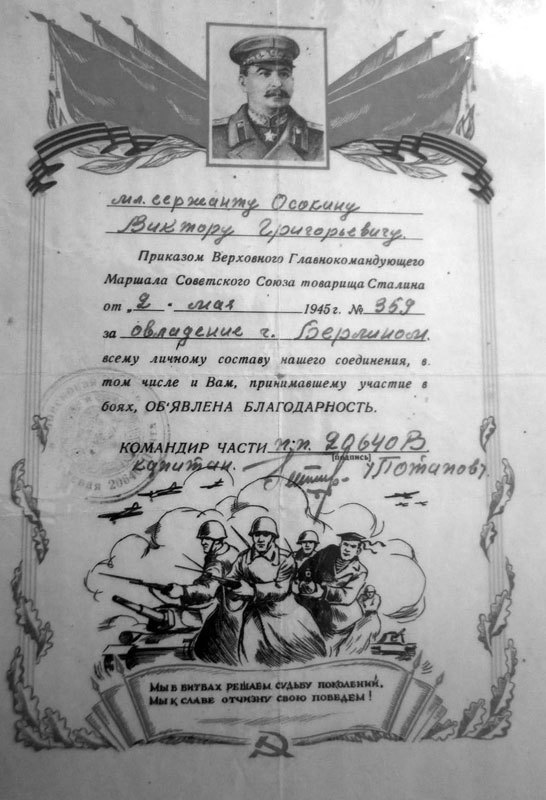 мл. сержанту Осокину
Виктору Григорьевичу.
Приказом Верховного Главнокомандующего
Маршала Советского Союза товарища Сталина
от „2 · мая 1945 г. № 359
за овладение г. Берлином.
всему личному составу нашего соединения, в
том числе и Вам, принимавшему участие в
боях, ОБ'ЯВЛЕНА БЛАГОДАРНОСТЬ.
КОМАНДИР ЧАСТИ п.п. 20640 В
[подпись]
капитан. /Потапов/
МЫ В БИТВАХ РЕШАЕМ СУДЬБУ ПОКОЛЕНИЙ,
МЫ К СЛАВЕ ОТЧИЗНУ СВОЮ ПОВЕДЕМ!